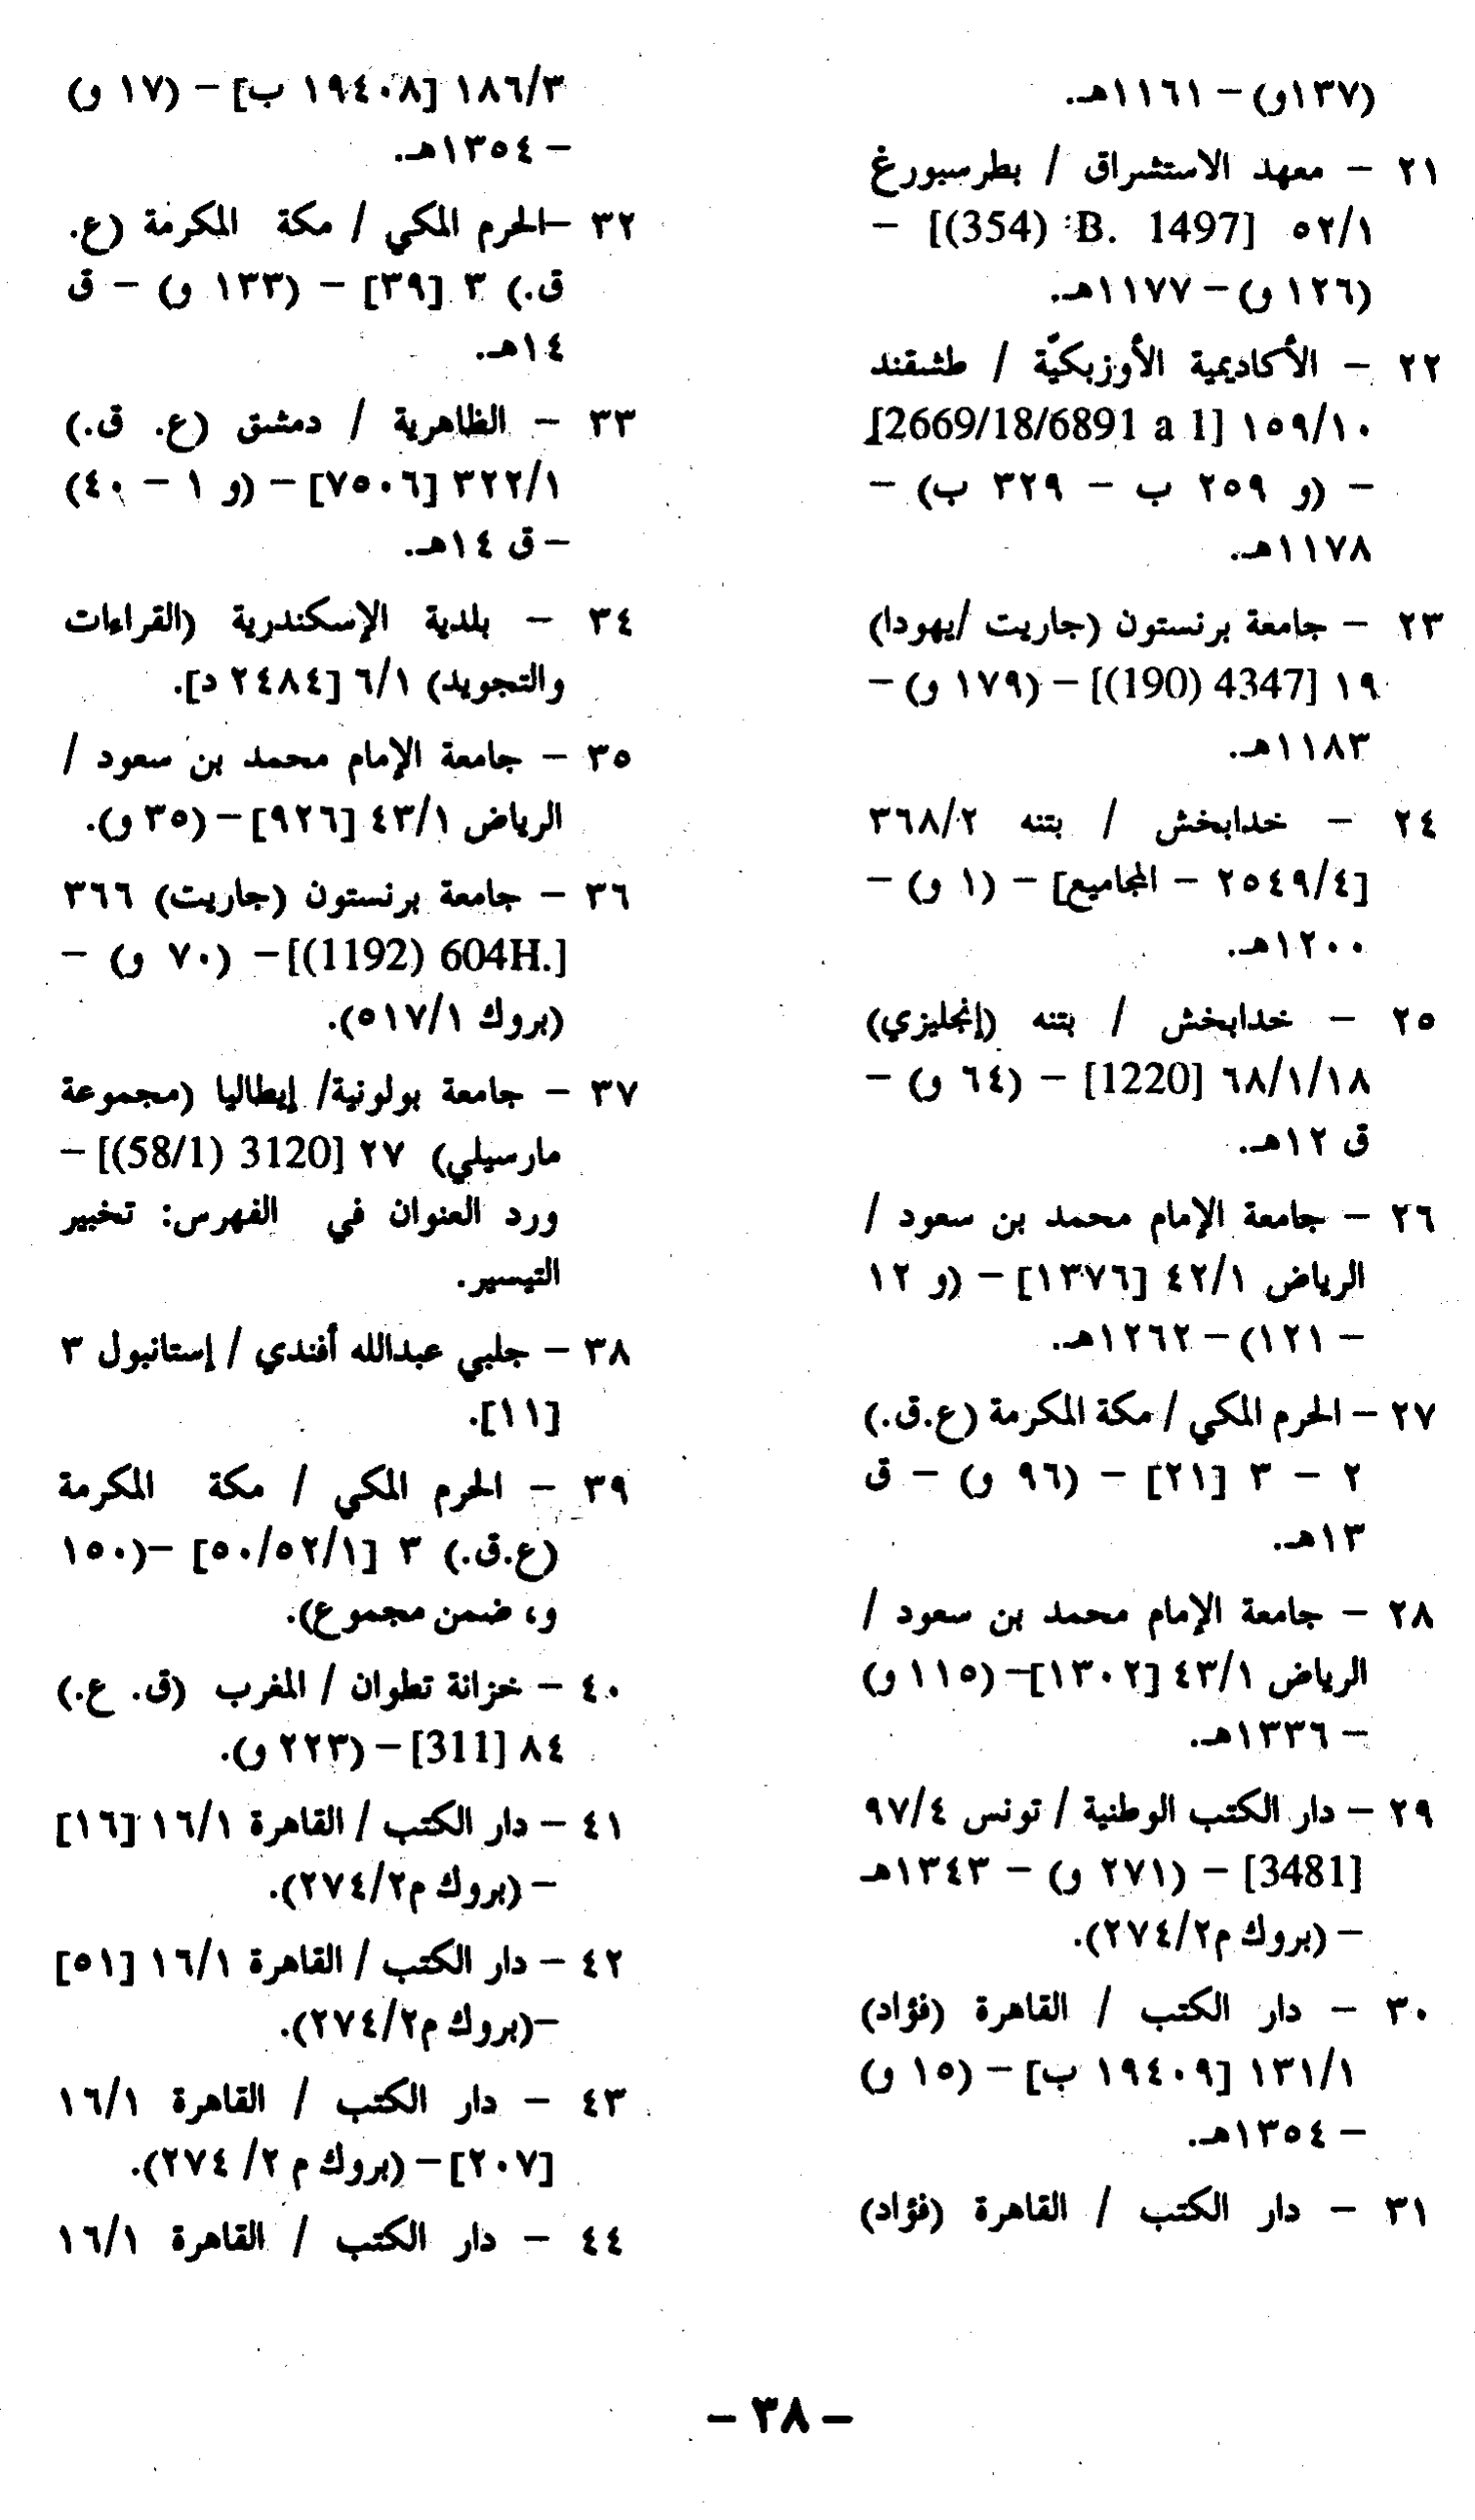 (١٣٧و) – ١١٦١هـ.
٢١ – معهد الاستشراق / بطرسبورغ
٥٢/١ [B. 1497 (354)] –
(١٢٦ و) – ١١٧٧هـ.
٢٢ – الأكاديمية الأوزبكيّة / طشقند
١٥٩/١٠ [2669/18/6891 a 1]
– (و ٢٥٩ ب – ٣٢٩ ب) –
١١٧٨هـ.
٢٣ – جامعة برنستون (جاريت /يهودا)
١٩ [4347 (190)] – (١٧٩ و) –
١١٨٣هـ.
٢٤ – خدابخش / بتنه ٣٦٨/٢
[٢٥٤٩/٤ – المجاميع] – (١ و) –
١٢٠٠هـ.
٢٥ – خدابخش / بتنه (إنجليزي)
٦٨/١/١٨ [1220] – (٦٤ و) –
ق ١٢هـ.
٢٦ – جامعة الإمام محمد بن سعود /
الرياض ٤٢/١ [١٣٧٦] – (و ١٢
– ١٢١) – ١٢٦٢هـ.
٢٧ – الحرم المكي / مكة المكرمة (ع.ق.)
٢ – ٣ [٢١] – (٩٦ و) – ق
١٣هـ.
٢٨ – جامعة الإمام محمد بن سعود /
الرياض ٤٣/١ [١٣٠٢] – (١١٥ و)
– ١٣٣٦هـ.
٢٩ – دار الكتب الوطنية / تونس ٩٧/٤
[3481] – (٢٧١ و) – ١٣٤٣هـ
– (بروك م٢/٢٧٤).
٣٠ – دار الكتب / القاهرة (فؤاد)
١٣١/١ [١٩٤٠٩ ب] – (١٥ و)
– ١٣٥٤هـ.
٣١ – دار الكتب / القاهرة (فؤاد)
١٨٦/٣ [١٩٤٠٨ ب] – (١٧ و)
– ١٣٥٤هـ.
٣٢ –الحرم المكي / مكة المكرمة (ع.
ق.) ٣ [٣٩] – (١٣٣ و) – ق
١٤هـ.
٣٣ – الظاهرية / دمشق (ع. ق.)
٣٢٢/١ [٧٥٠٦] – (و ١ – ٤٠)
– ق ١٤هـ.
٣٤ – بلدية الإسكندرية (القراءات
والتجويد) ٦/١ [٢٤٨٤ د].
٣٥ – جامعة الإمام محمد بن سعود /
الرياض ٤٣/١ [٩٢٦] – (٣٥ و).
٣٦ – جامعة برنستون (جاريت) ٣٦٦
[.604H (1192)] – (٧٠ و) –
(بروك ٥١٧/١).
٣٧ – جامعة بولونية/ إيطاليا (مجموعة
مارسيلي) ٢٧ [3120 (58/1)] –
ورد العنوان في الفهرس: تخبير
التيسير.
٣٨ – جلبي عبدالله أفندي / إستانبول ٣
[١١].
٣٩ – الحرم المكي / مكة المكرمة
(ع.ق.) ٣ [٥٠/٥٢/١] –(١٥٠
و، ضمن مجموع).
٤٠ – خزانة تطوان / المغرب (ق. ع.)
٨٤ [311] – (٢٢٣ و).
٤١ – دار الكتب / القاهرة ١٦/١ [١٦]
– (بروك م٢/٢٧٤).
٤٢ – دار الكتب / القاهرة ١٦/١ [٥١]
–(بروك م٢/٢٧٤).
٤٣ – دار الكتب / القاهرة ١٦/١
[٢٠٧] – (بروك م ٢/ ٢٧٤).
٤٤ – دار الكتب / القاهرة ١٦/١
– ٣٨ –